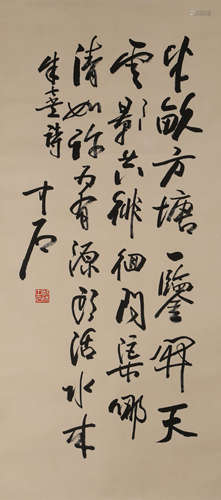 半畝方塘一鑒開天
雲影共徘徊問渠哪
清如許为有源頭活水来
朱熹詩
寸石